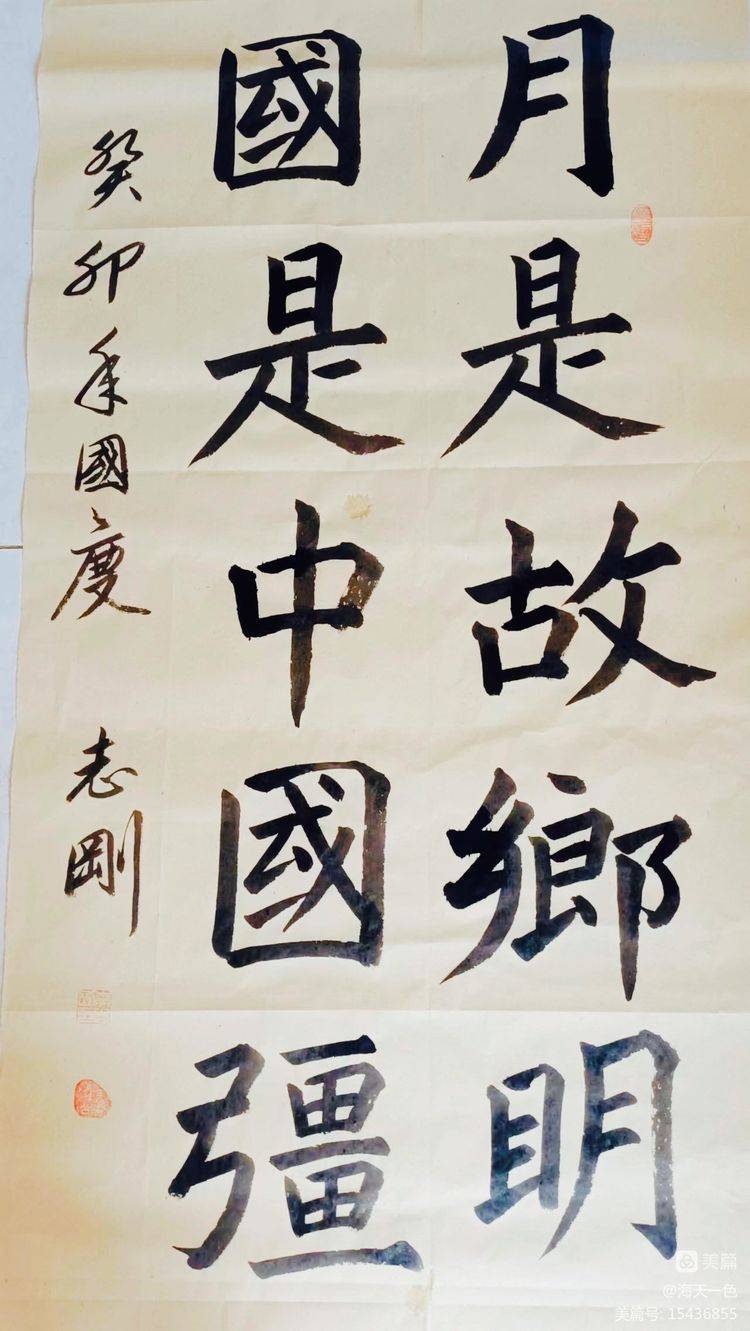 月是故鄉明
國是中國彊
癸卯年國慶 志剛
美篇
@海天一色
美篇号: 15436855